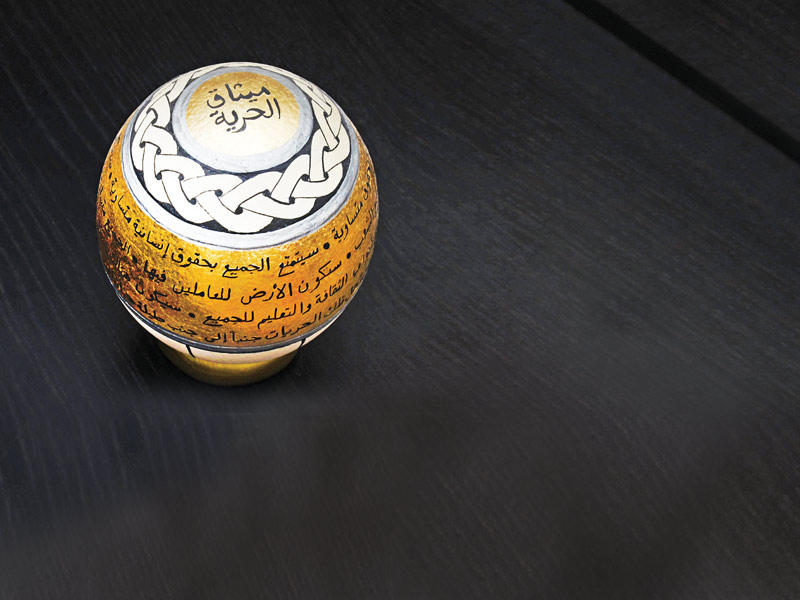 ميثاق
الحرية
متساوية • سيتمتع الجميع بحقوق إنسانية متساوية
• ستكون الأرض للعاملين فيها •
الثقافة والتعليم للجميع • سيكون
تلك الحريات جنباً إلى جنب